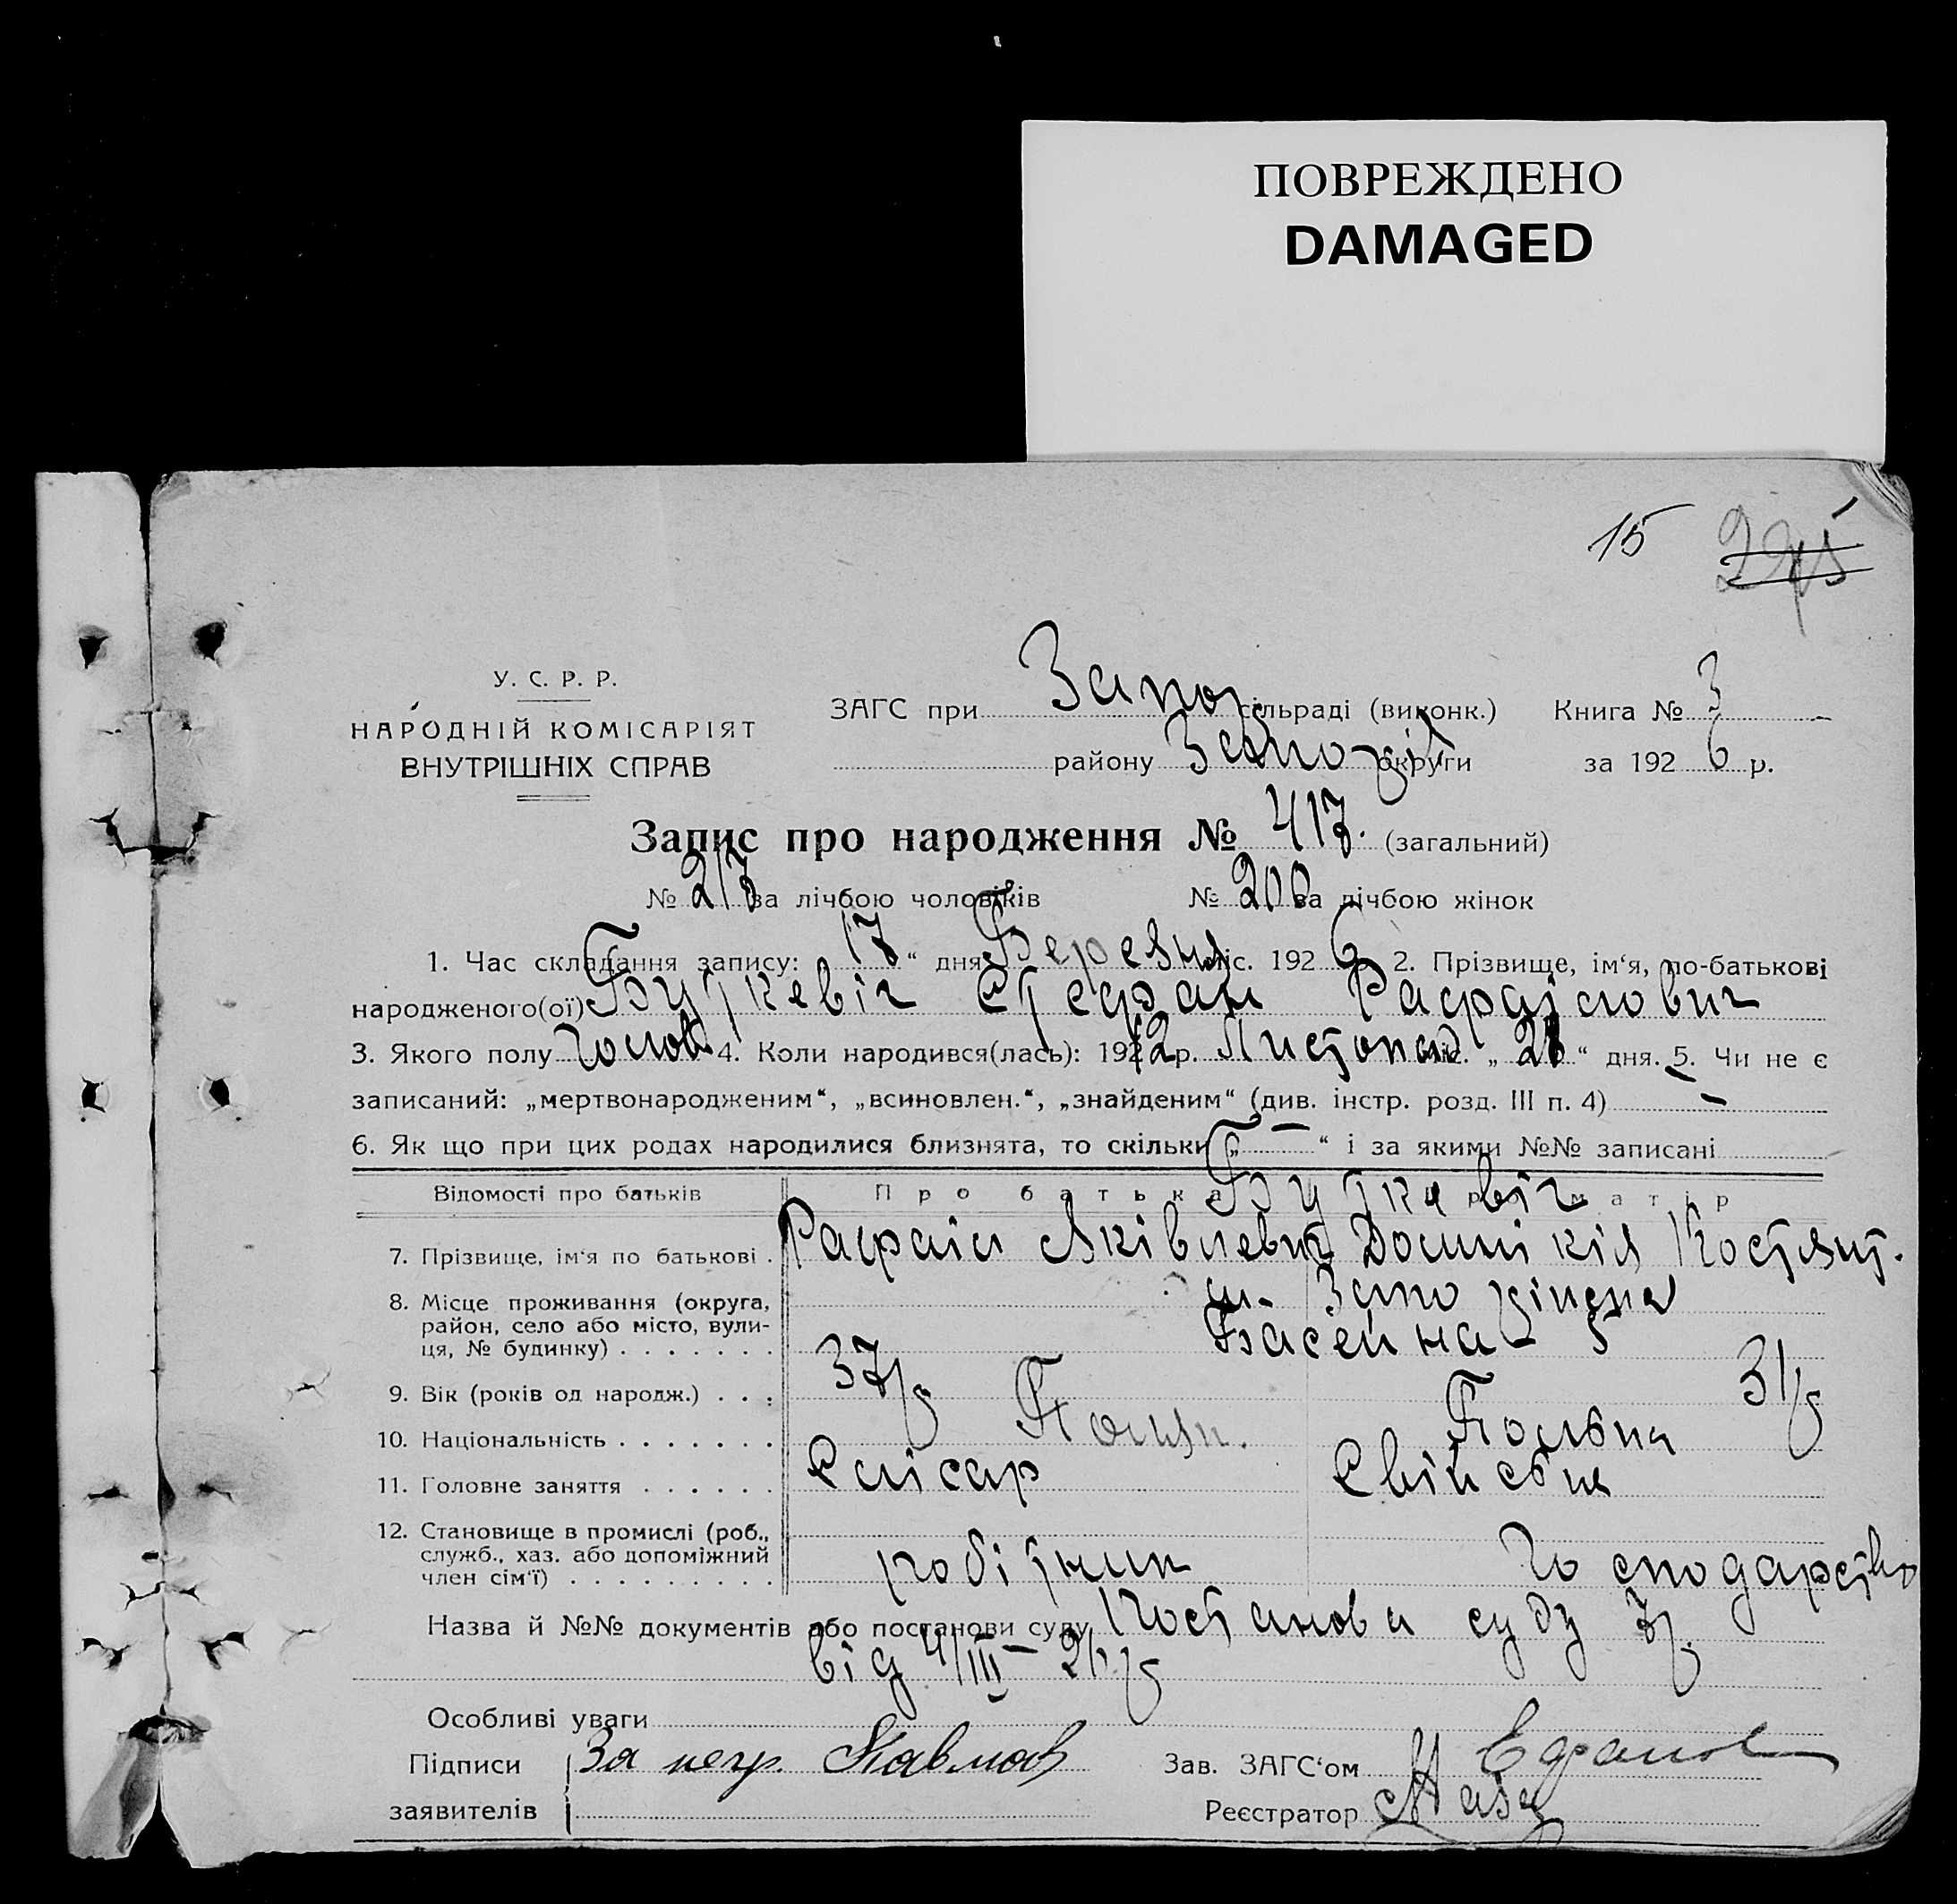 ПОВРЕЖДЕНО
DAMAGED
15
У. С. Р. Р.
НАРОДНІЙ КОМІСАРІЯТ
ВНУТРІШНІХ СПРАВ
ЗАГС при Запоріз сільраді (виконк.) Книга № 3
району Запоріж округи за 1926 р.
Запис про народження № 417. (загальний)
№ 217 за лічбою чоловіків № 200 за лічбою жінок
1. Час складання запису: 17 “ дня Березня міс. 1926 2. Прізвище, ім‘я, по-батькові
народженого(ої) Буткевіч Стефан Рафаілович
3. Якого полу Чолов 4. Коли народився(лась): 1912 р. Листопад міс. „ “ дня. 5. Чи не є
записаний: „мертвонародженим“, „всиновлен.“, „знайденим“ (див. інстр. розд. III п. 4) —
6. Як що при цих родах народилися близнята, то скільки „ — “ і за якими №№ записані
Відомості про батьків Про батька Про матір
Буткевіч
7. Прізвище, ім‘я по батькові . Рафаіл Яківлевич Домінікія Костянт.
8. Місце проживання (округа, район, село або місто, вулиця, № будинку) . . . . . . . м. Запоріжжя
Басейна 5
9. Вік (років од народж.) . . . 37 р 31 р
10. Національність . . . . . . . Поляк. Полька
11. Головне заняття . . . . . . Слісар Свійська
12. Становище в промислі (роб., служб., хаз. або допоміжний член сім‘ї) . . . . . . . . . робітник господарство
Назва й №№ документів або постанови суду Постанова суду
від 4/III – 26 р
Особливі уваги
Підписи За негр. Зав. ЗАГС‘ом
заявителів Реєстратор